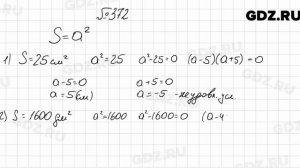 GDZ.RU
№372
S=a²
1) S=25см² a²=25 a²-25=0 (a-5)(a+5)=0
a-5=0 a+5=0
a=5(см) a=-5 -не удовл. ус.
2) S=1600дм² a²=1600 a²-1600=0 (a-4
GDZ.RU